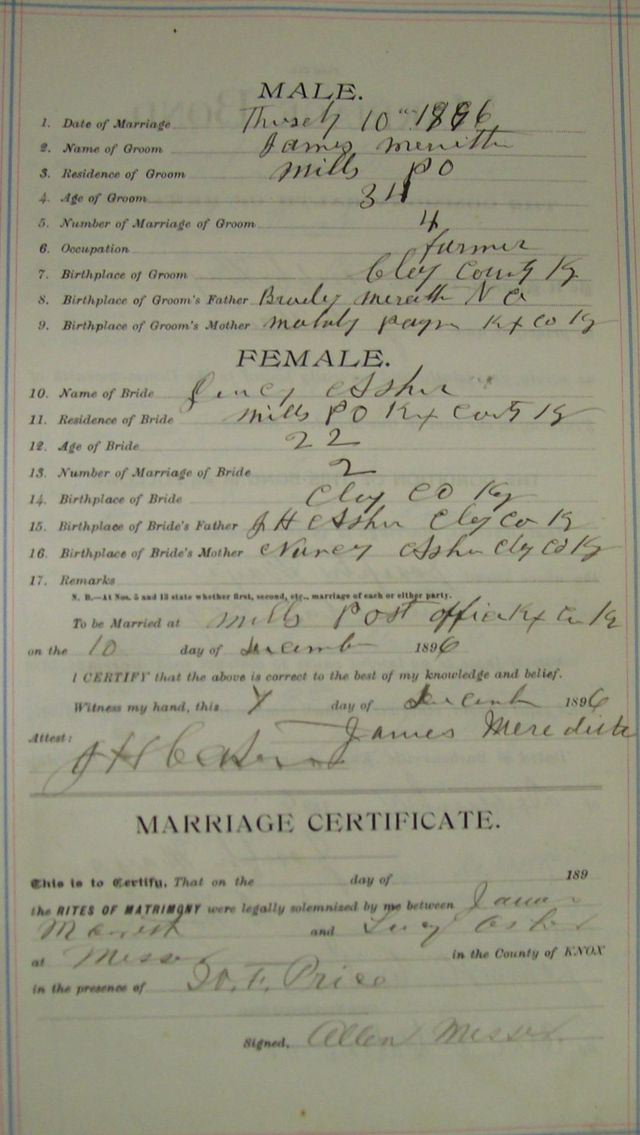 MALE.
1. Date of Marriage Thursdy 10th 1896
2. Name of Groom James
3. Residence of Groom Mills PO
4. Age of Groom 34
5. Number of Marriage of Groom 4
6. Occupation farmer
7. Birthplace of Groom Cley County Ky
8. Birthplace of Groom's Father N C
9. Birthplace of Groom's Mother Kx Co Ky
FEMALE.
10. Name of Bride Asher
11. Residence of Bride Mills PO Kx County Ky
12. Age of Bride 22
13. Number of Marriage of Bride 2
14. Birthplace of Bride Cley CO Ky
15. Birthplace of Bride's Father J H Asher Cley Co K
16. Birthplace of Bride's Mother Nancy Asher Cly Co Ky
17. Remarks
N. B.—At Nos. 5 and 13 state whether first, second, etc., marriage of each or either party.
To be Married at Mills Post office Kx Co Ky
on the 10 day of 1896
I CERTIFY that the above is correct to the best of my knowledge and belief.
Witness my hand, this day of 1896
James Meredith
Attest:
MARRIAGE CERTIFICATE.
This is to Certify, That on the day of 189
the RITES OF MATRIMONY were legally solemnized by me between James
and Lucy Asher
at Messer in the County of KNOX
in the presence of F. Price
Signed, Allen Messer